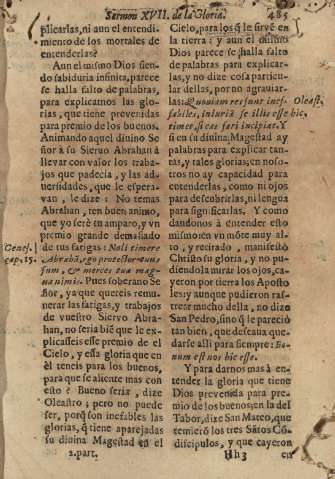 Sermon XVII. de la Gloria. 485
plicarlas, ni aun el entendi-
miento de los mortales de
entenderlas?
Aun el mismo Dios sien-
do sabiduria infinita, parece
se halla falto de palabras,
para explicarnos las glo-
rias, que tiene prevenidas
para premio de los buenos.
Animando aquel divino Se
ñor à su Siervo Abrahan à
llevar con valor los traba-
jos que padecia, y las ad-
versidades, que le espera-
van, le dize: No temas
Abrahan, ten buen animo,
que yo serè tu amparo, y vn
premio grande demasiado
de tus fatigas: Noli timere
Abrahã, ego protector tuus
sum, & merces tua mag-
na nimis. Pues soberano Se
ñor, ya que quereis remu-
nerar las fatigas, y trabajos
de vuestro Siervo Abra-
han, no seria biẽ que le ex-
plicasseis esse premio de el
Cielo, y essa gloria que en
èl teneis para los buenos,
para que se aliente mas con
esto? Bueno seria, dize
Oleastro; pero no puede
ser, porq̃ son inefables las
glorias, q̃ tiene aparejadas
su divina Magestad en el
2. part.
Genes.
cap. 15.
Cielo, para los q̃ le sirvẽ en
la tierra: y aun el mismo
Dios parece se halla falto
de palabras para explicar-
las, y no dize cosa particu-
lar dellas, por no agraviar-
las: Quoniam res sunt inef-
fabiles, iniuriã se illis esse
si eas fari incipiat. Y
si en su divina Magestad ay
palabras para explicar tan-
tas, y tales glorias; en noso-
tros no ay capacidad para
entenderlas, como ni ojos
para descubrirlas, ni lengua
para significarlas. Y como
dandonos à entender esto
mismo en vn mõte muy al-
to, y retirado, manifestò
Christo su gloria, y no pu-
diendola mirar los ojos, ca-
yeron por tierra los Aposto
les; y aunque pudieron ras-
trear mucho della, no dize
San Pedro, sino q̃ le pareciò
tan bien, que deseava que-
darse alli para siempre: Bo-
num est nos hic esse.
Y para darnos mas à en-
tender la gloria que tiene
Dios prevenida para pre-
mio de los buenos, en la del
Tabor, dize San Mateo, que
temierõ los tres Sãtos
discipulos, y que cayeron
Hh3 en
Oleast.
hic,